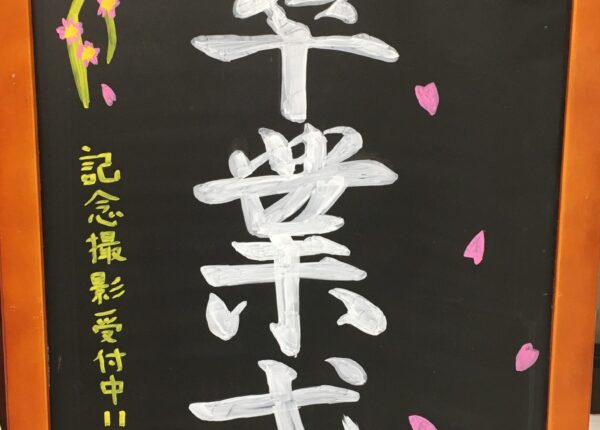 卒業式
記念撮影受付中!!